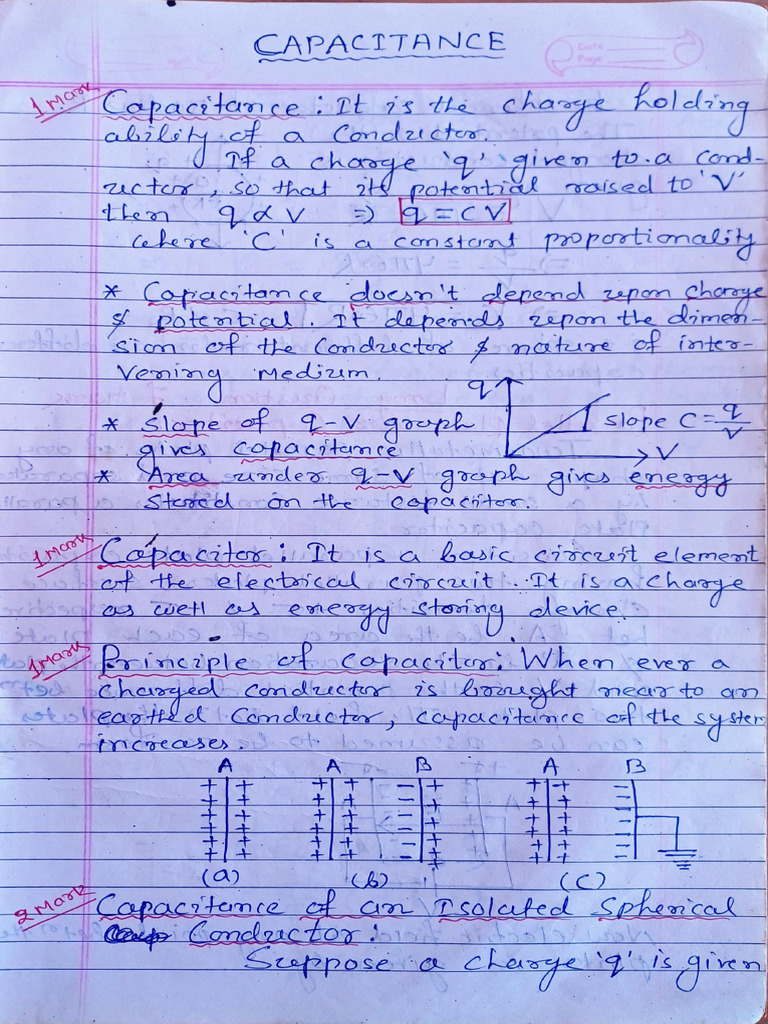 CAPACITANCE
Date
Page
1 Mark
Capacitance : It is the charge holding
ability of a conductor.
If a charge 'q' given to a cond-
uctor, so that its potential raised to 'V'
then q ∝ V ⇒ q = CV
where 'C' is a constant proportionality
* Capacitance doesn't depend upon charge
& potential. It depends upon the dimen-
sion of the conductor & nature of inter-
vening medium.
q
* Slope of q-V graph
slope C = q/V
V
gives capacitance
* Area under q-V graph gives energy
stored on the capacitor.
1 Mark
Capacitor : It is a basic circuit element
of the electrical circuit. It is a charge
as well as energy storing device.
1 Mark
Principle of capacitor : When ever a
charged conductor is brought near to an
earthed conductor, capacitance of the system
increases.
A A B A B
(a) (b) (c)
2 Mark
Capacitance of an Isolated Spherical
Conductor :
Suppose a charge 'q' is given